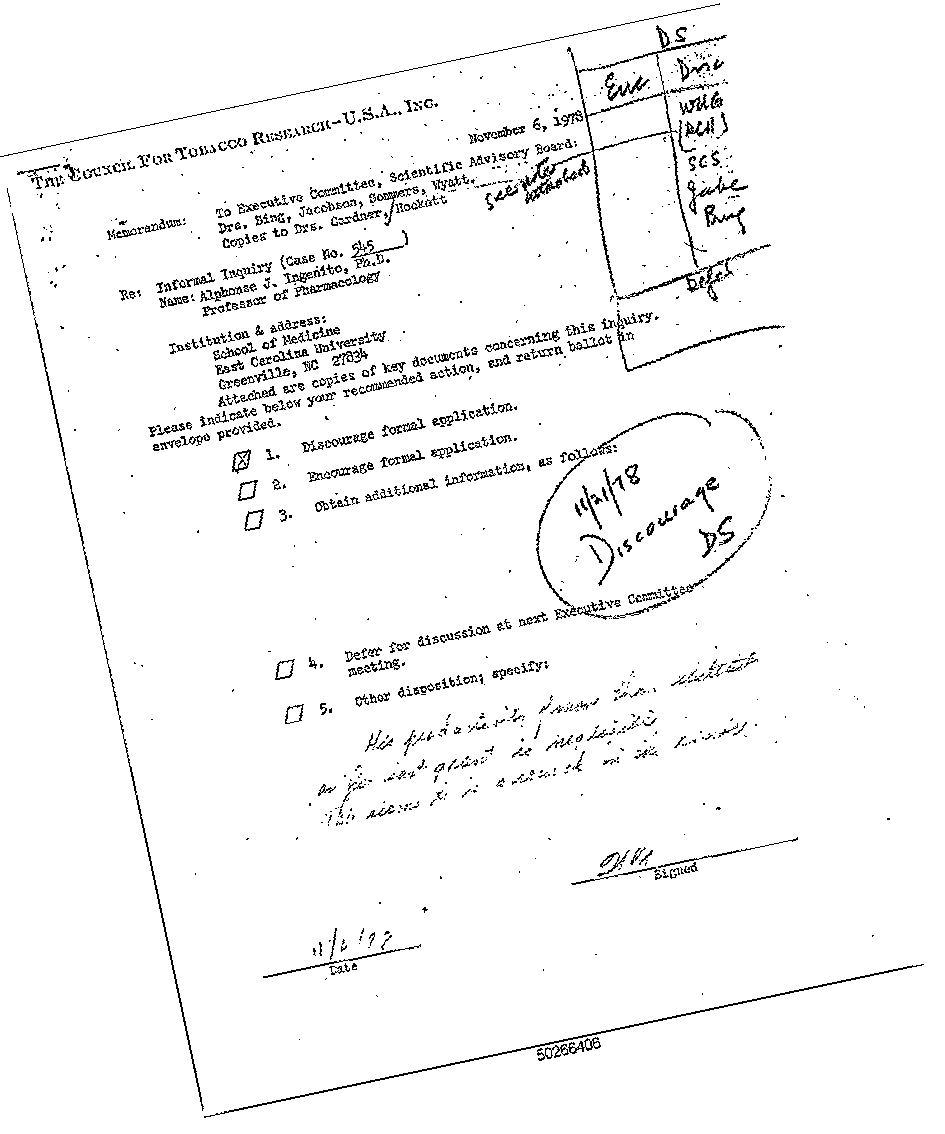 DS
Enc Disc
WUG
(RCH)
SCS
Jake
Bing
Defer
THE COUNCIL FOR TOBACCO RESEARCH-U.S.A., INC.
November 6, 1978
Memorandum: To Executive Committee, Scientific Advisory Board:
Drs. Bing, Jacobson, Sommers, Wyatt.
Copies to Drs. Gardner, Hockett
see notes
attached
Re: Informal Inquiry (Case No. 545)
Name: Alphonse J. Ingenito, Ph.D.
Professor of Pharmacology
Institution & address:
School of Medicine
East Carolina University
Greenville, NC 27834
Attached are copies of key documents concerning this inquiry.
Please indicate below your recommended action, and return ballot in
envelope provided.
1. Discourage formal application.
2. Encourage formal application.
3. Obtain additional information, as follows:
11/21/78
Discourage
DS
4. Defer for discussion at next Executive Committee
meeting.
5. Other disposition; specify:
His productivity from the
grant is negligible
This seems to in the
Signed
Date
50266406